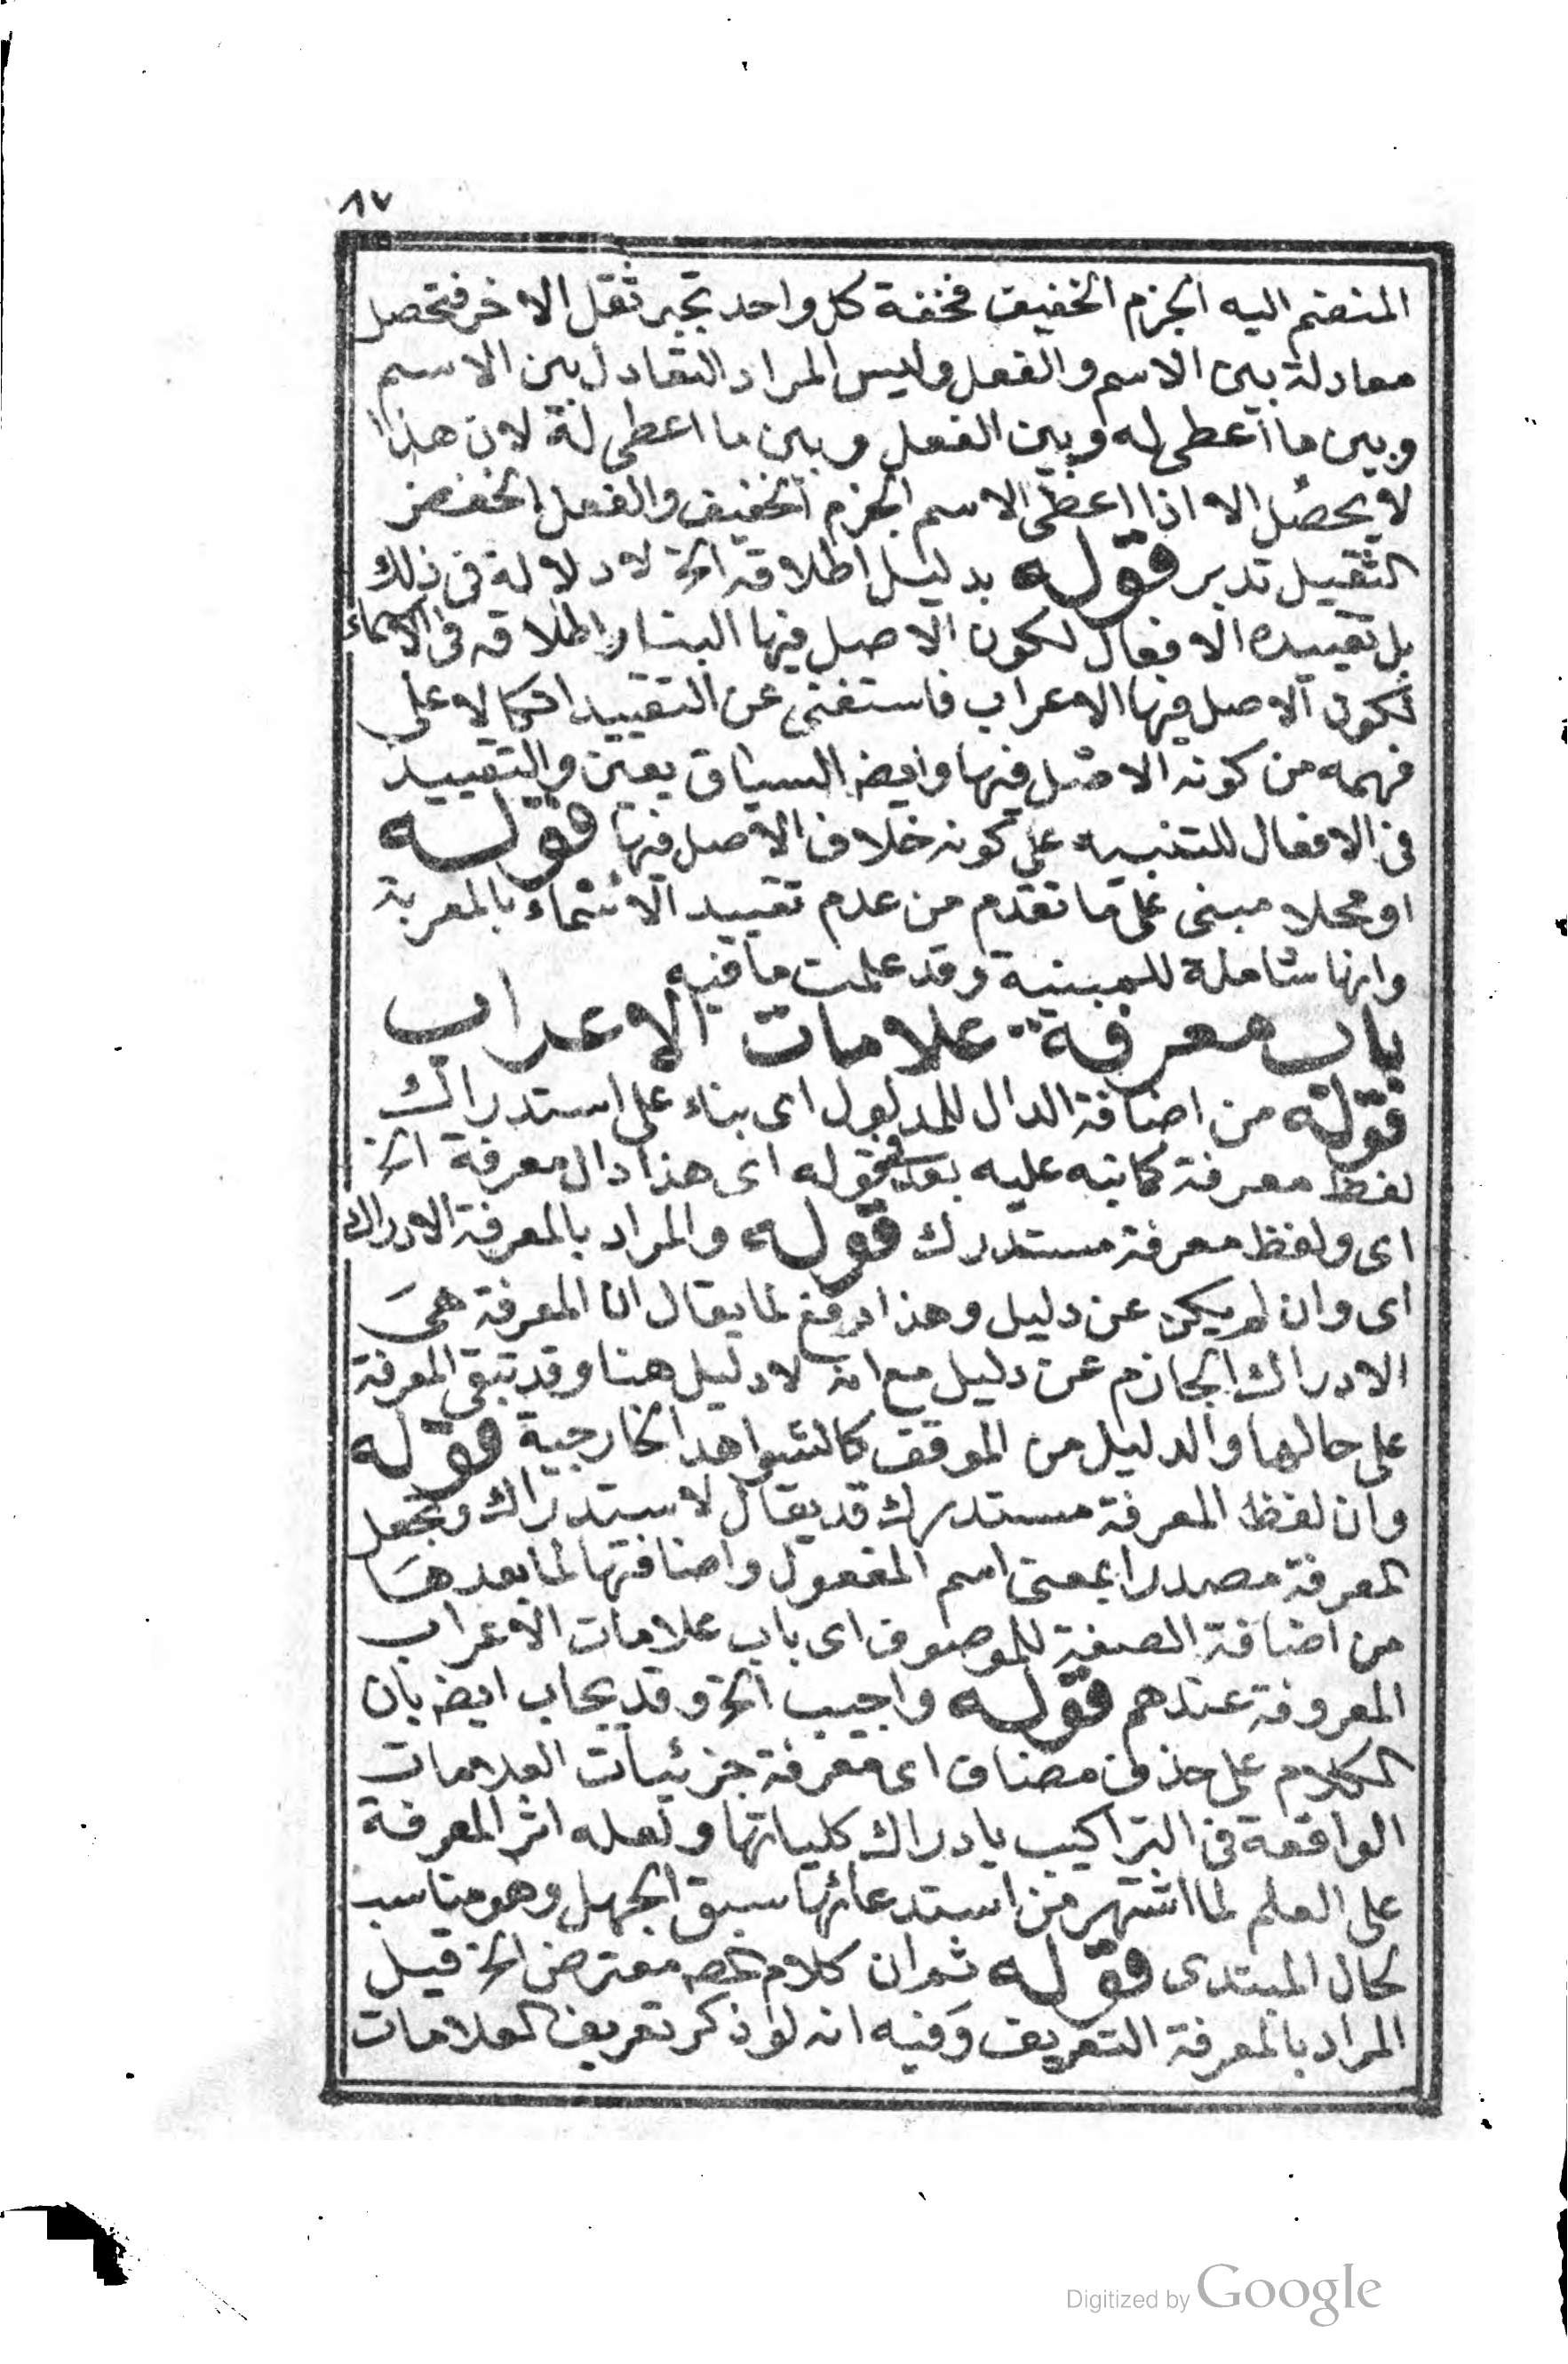 ٨٧
المنضم اليه الجزم الخفيف فخفة كل واحد تجبر ثقل الاخر فتحصل
معادلة بين الاسم والفعل وليس المراد التعادل بين الاسم
وبين ما اعطى له وبين الفعل وبين ما اعطى له لان هذا
لا يحصل الا اذا اعطى الاسم الجزم الخفيف والفعل الخفض
الثقيل تدبر قوله بدليل اطلاقه الخ لا دلالة فى ذلك
بل تقييده الافعال لكون الاصل فيها البنا واطلاقه فى الاسماء
لكون الاصل فيها الاعراب فاستغنى عن التقييد اتكالا على
فهمه من كونه الاصل فيها وايضا السياق يعين والتقييد
فى الافعال للتنبيه على كونه خلاف الاصل فيها قوله
او محلا مبنى على ما تقدم من عدم تقييد الاسماء بالمعربة
وانها شاملة للمبنية وقد علمت ما فيه
باب معرفة علامات الاعراب
قوله من اضافة الدال للمدلول اى بناء على استدراك
لفظ معرفة كما نبه عليه بعد فقوله اى هذا دال معرفة الخ
اى ولفظ معرفة مستدرك قوله والمراد بالمعرفة الادراك
اى وان لم يكن عن دليل وهذا دفع لما يقال ان المعرفة هى
الادراك الجازم عن دليل مع انه لا دليل هنا وقد تبقى المعرفة
على حالها والدليل من الموقف كالشواهد الخارجية قوله
وان لفظ المعرفة مستدرك قد يقال لا استدراك وتجعل
المعرفة مصدرا بمعنى اسم المفعول واضافتها لما بعدها
من اضافة الصفة للموصوف اى باب علامات الاعراب
المعروفة عندهم قوله واجيب الخ وقد يجاب ايضا بان
الكلام على حذف مضاف اى معرفة جزئيات العلامات
الواقعة فى التراكيب بادراك كلياتها ولعله اثر المعرفة
على العلم لما اشتهر من استدعائها سبق الجهل وهو مناسب
لحال المبتدى قوله ثم ان كلام المصه معترض الخ قيل
المراد بالمعرفة التعريف وفيه انه لو ذكر تعريف العلامات
Digitized by Google